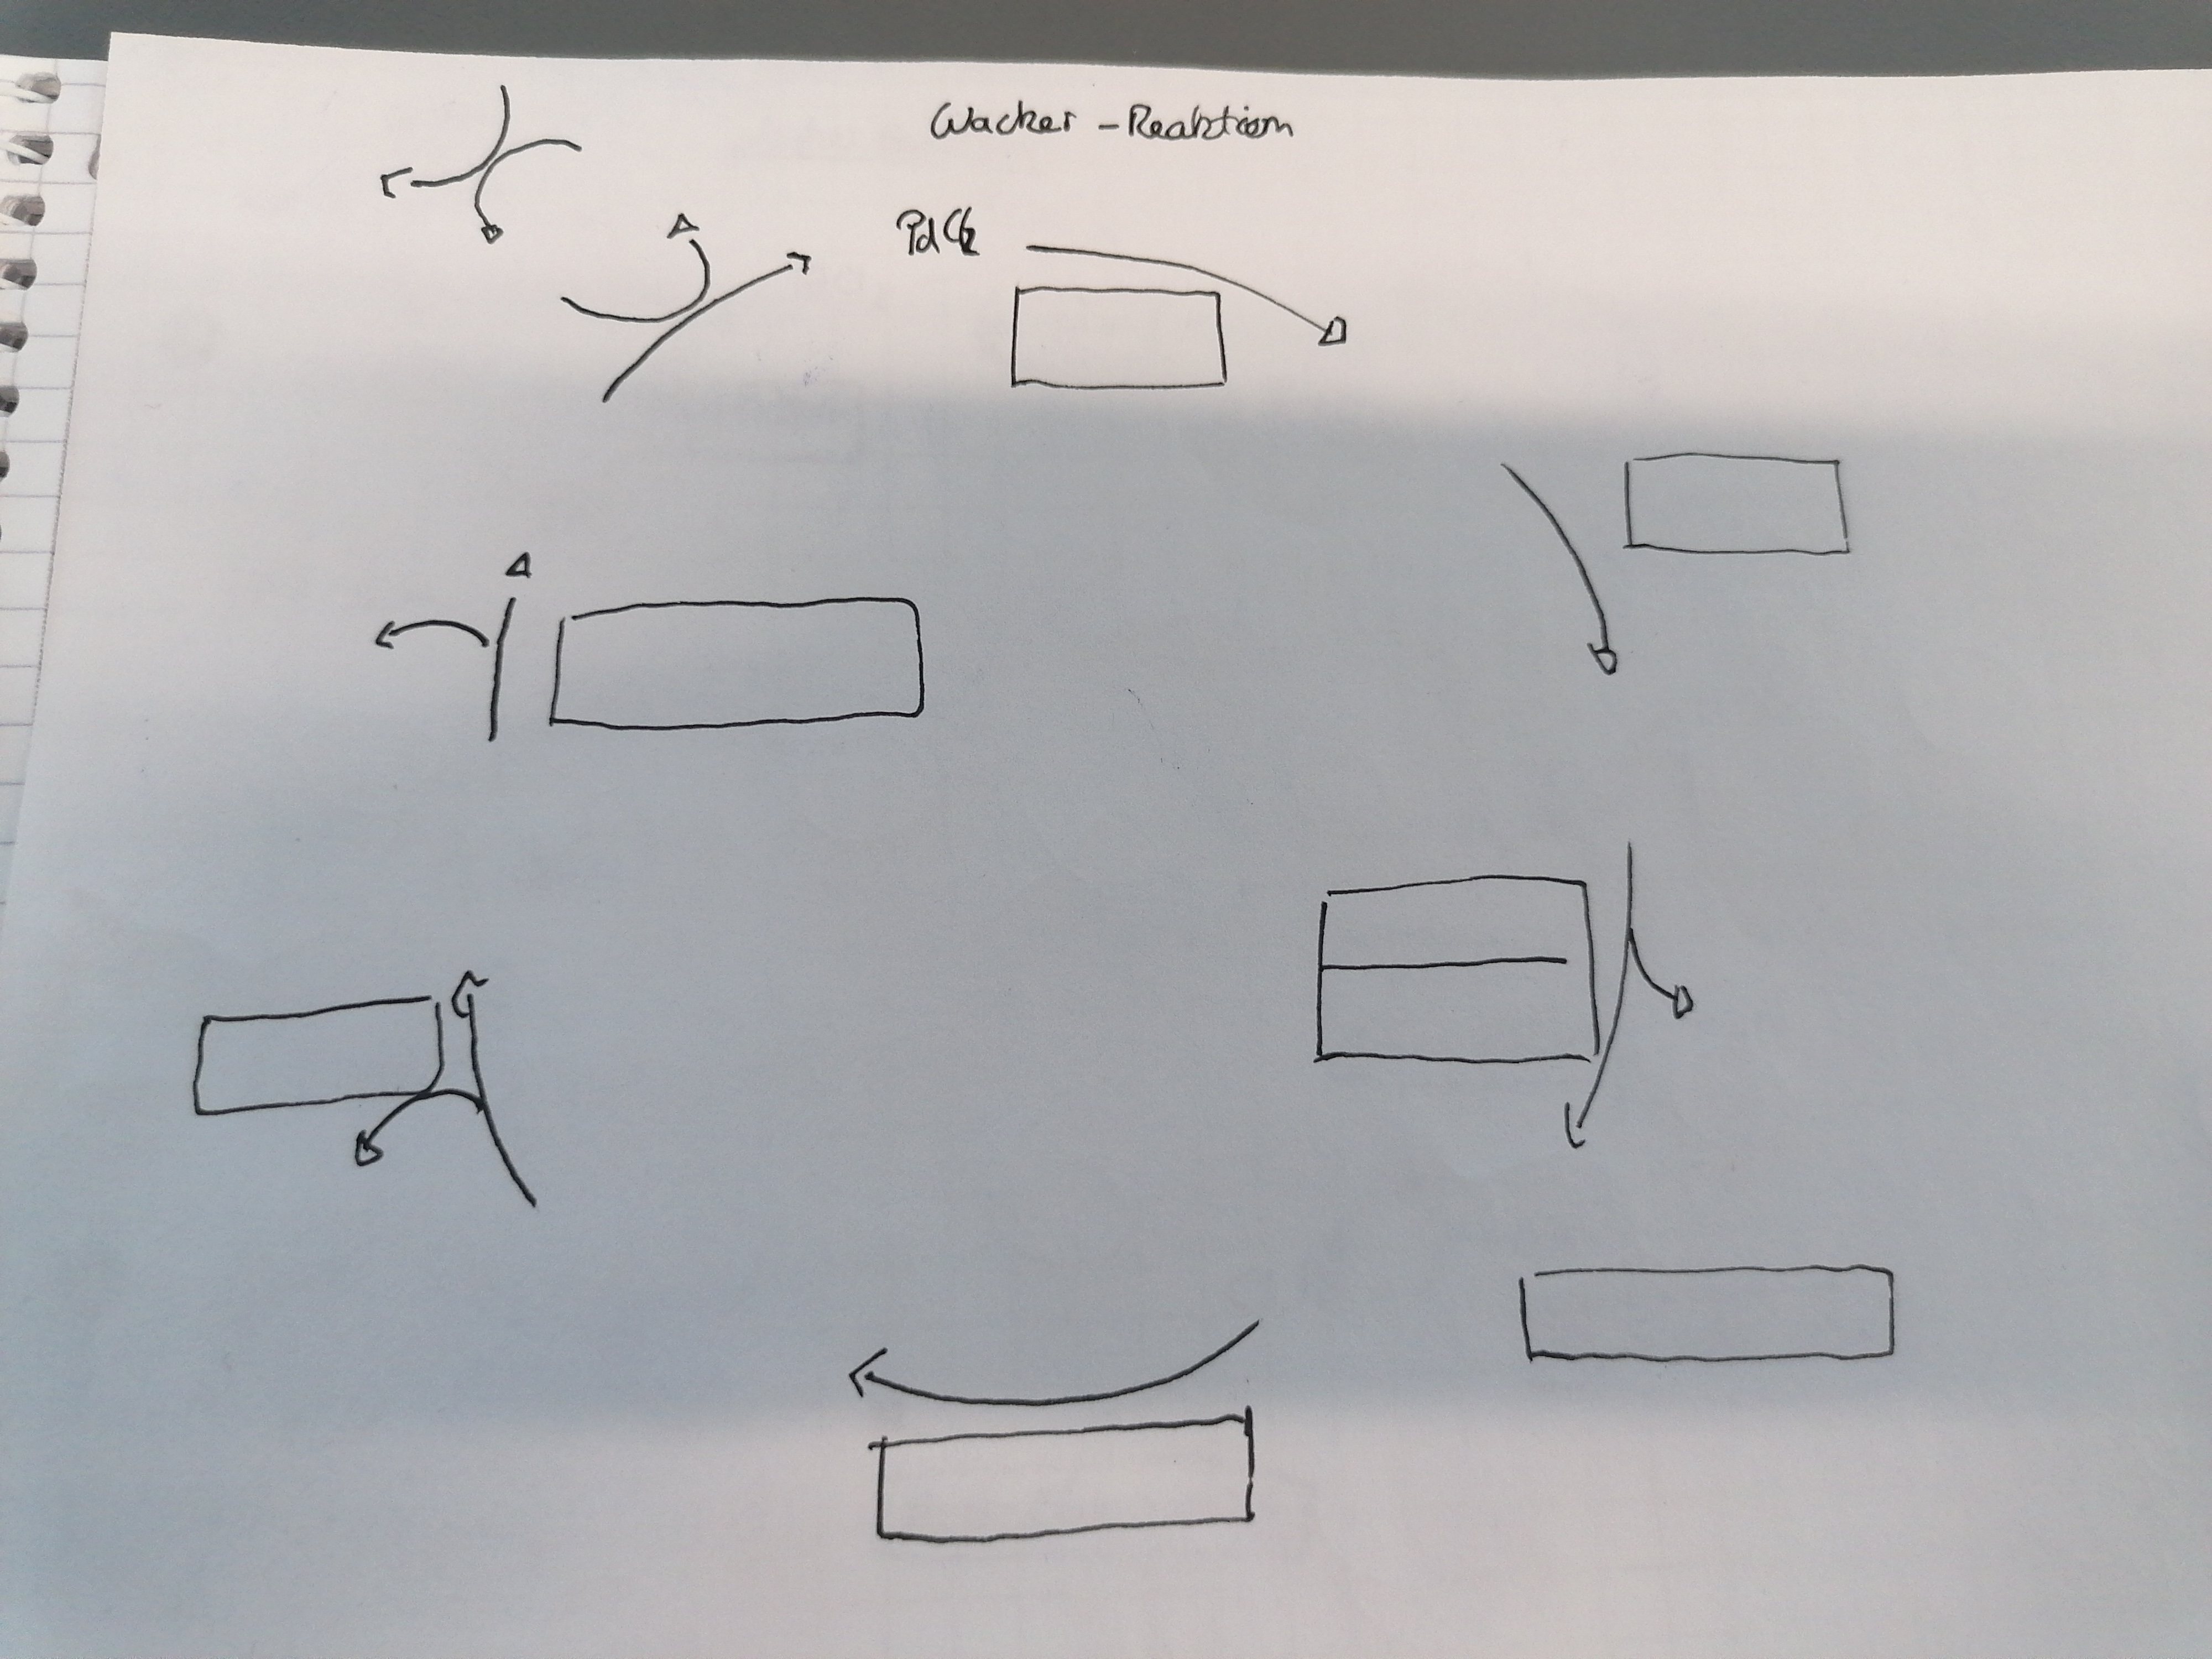 Wacker - Reaktion
PdCl2